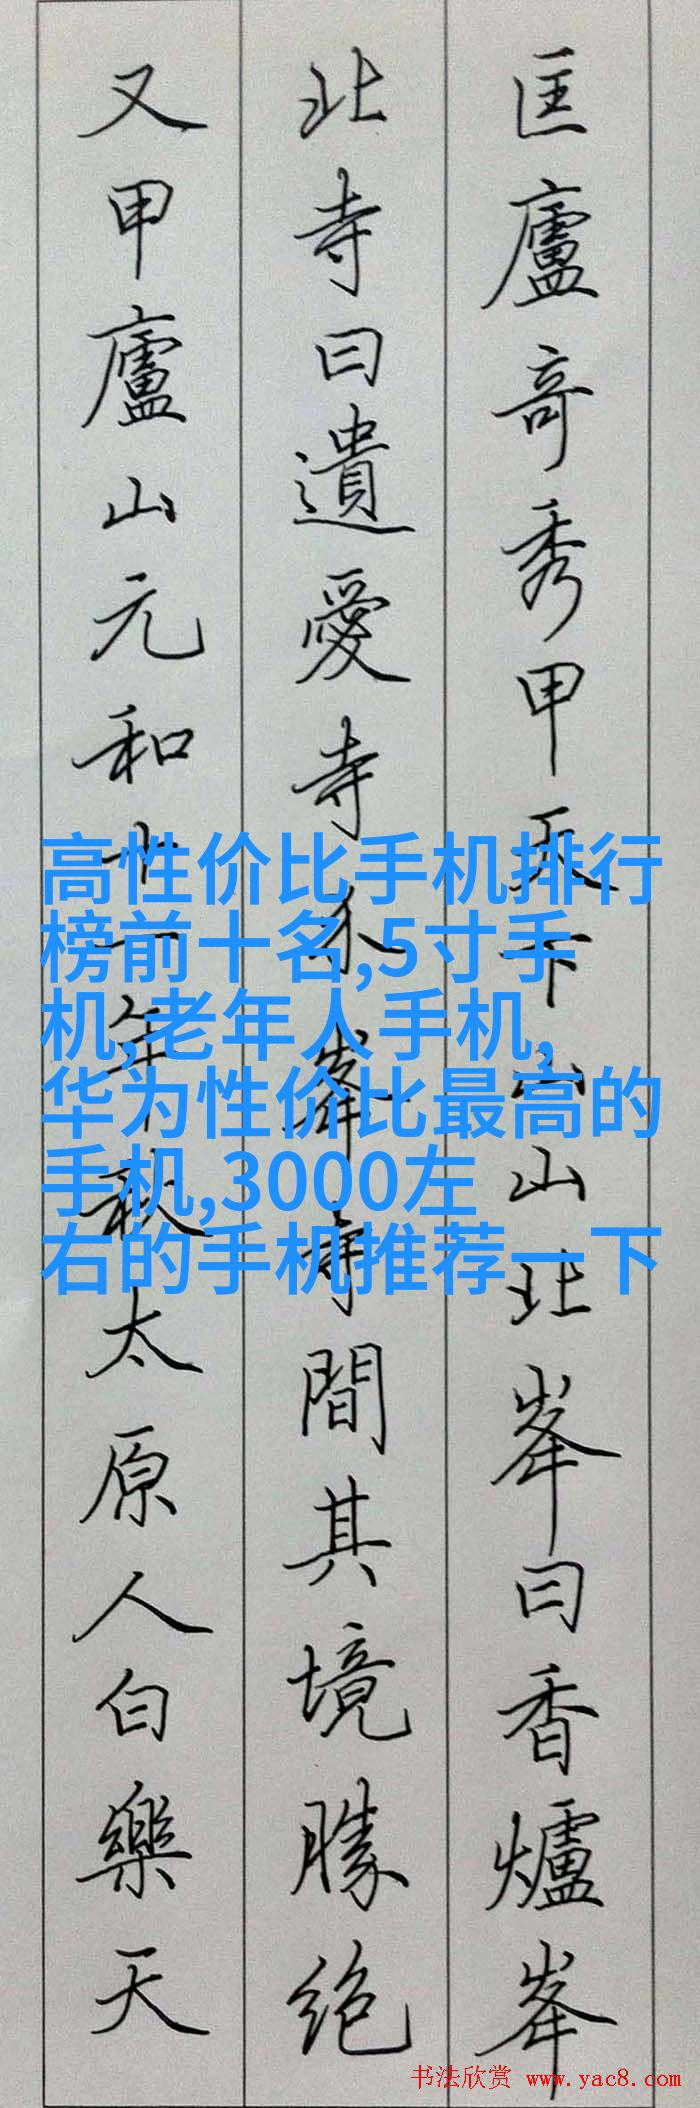 匡廬奇秀甲天下山山北峯曰香爐峯
北寺曰遺愛寺介峯寺間其境勝絶
又甲廬山元和十一年秋太原人白樂天
高性价比手机排行
榜前十名,5寸手
机,老年人手机,
华为性价比最高的
手机,3000左
右的手机推荐一下
书法欣赏 www.yac8.com